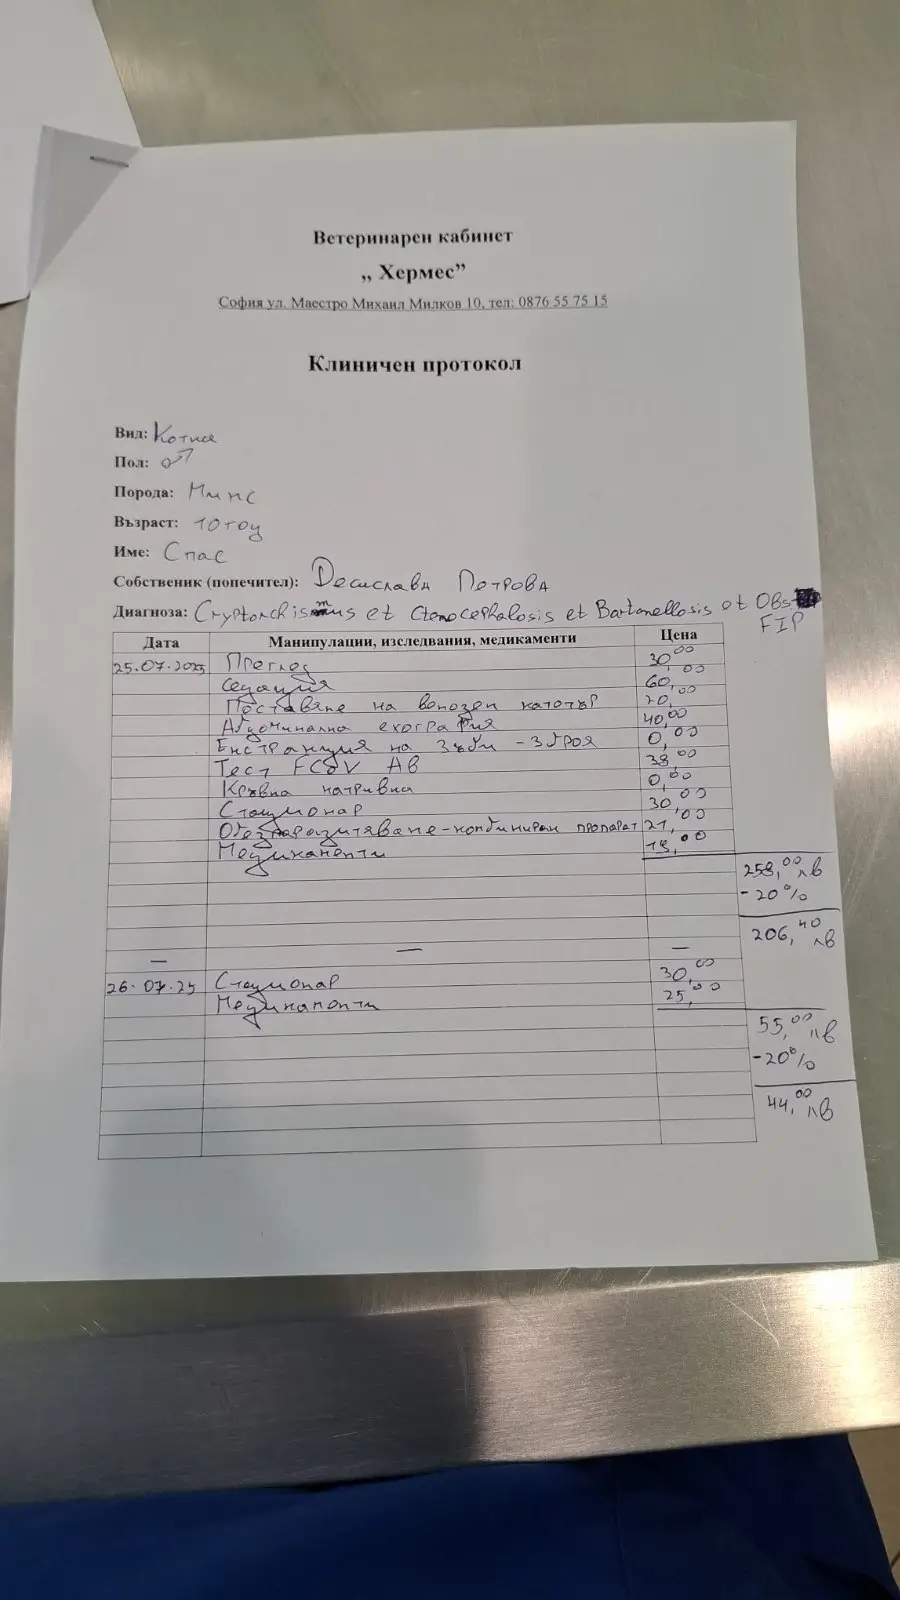 Ветеринарен кабинет
„ Хермес”
София ул. Маестро Михаил Милков 10, тел: 0876 55 75 15
Клиничен протокол
Вид: Котка
Пол: ♂
Порода: Микс
Възраст: 10 год
Име: Спас
Собственик (попечител): Десислава Петрова
Диагноза: Cryptorchismus et Ctenocephalosis et Bartonellosis et Obs
FIP
Дата Манипулации, изследвания, медикаменти Цена
25.07.2025 Преглед 30,00
Седация 60,00
Поставяне на венозен катетър 20,00
Абдоминална ехография 40,00
Екстракция на зъби - 3 броя 0,00
Тест FCoV AB 38,00
Кръвна натривка 0,00
Стационар 30,00
Обезпаразитяване - комбиниран препарат 21,00
Медикаменти 19,00
258,00 лв
- 20%
206,40 лв
— — —
26.07.25 Стационар 30,00
Медикаменти 25,00
55,00 лв
-20%
44,00 лв